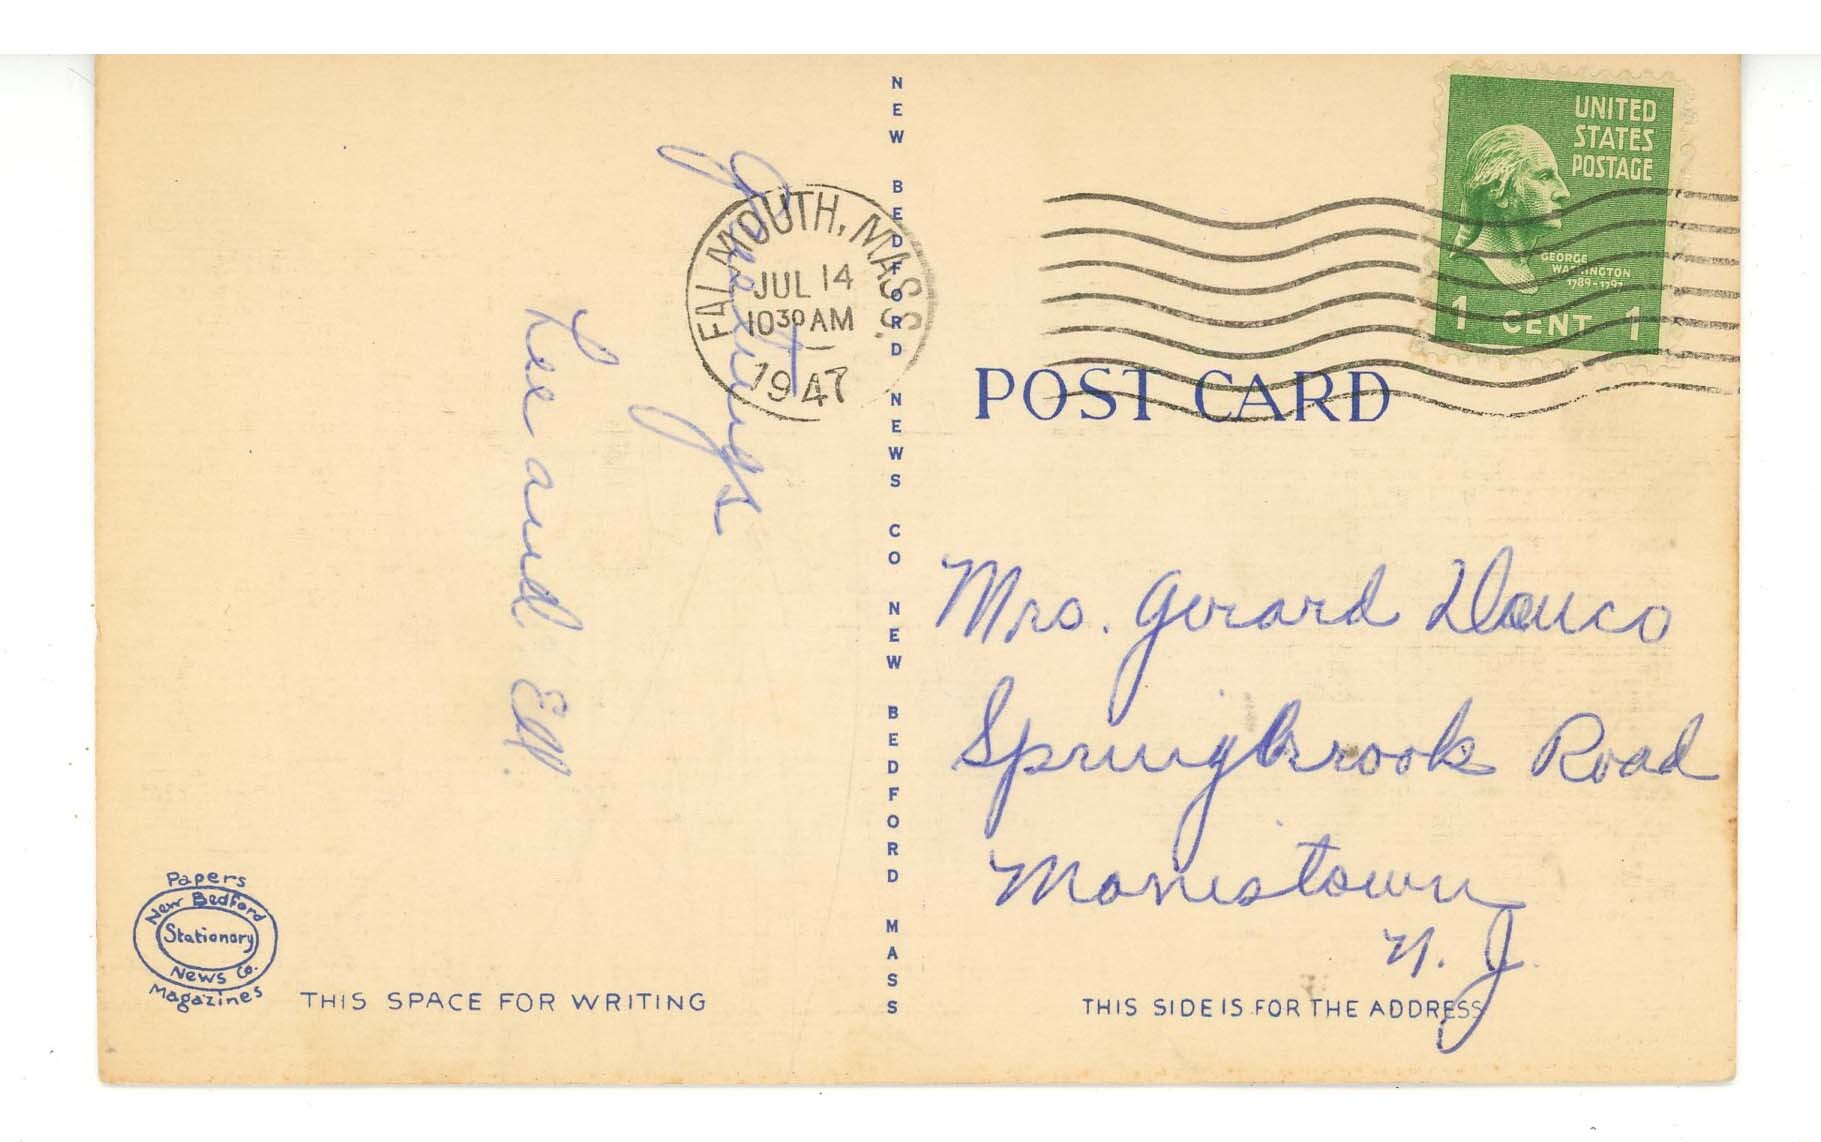 Greetings
Lee and Ed.
FALMOUTH, MASS.
JUL 14
10 30 AM
1947
NEW BEDFORD NEWS CO NEW BEDFORD MASS
UNITED
STATES
POSTAGE
GEORGE
WASHINGTON
1789-1797
1 CENT 1
POST CARD
Mrs. Gerard
Springbrook Road
Morristown
N. J.
Papers
New Bedford
Stationary
News Co.
Magazines
THIS SPACE FOR WRITING
THIS SIDE IS FOR THE ADDRESS